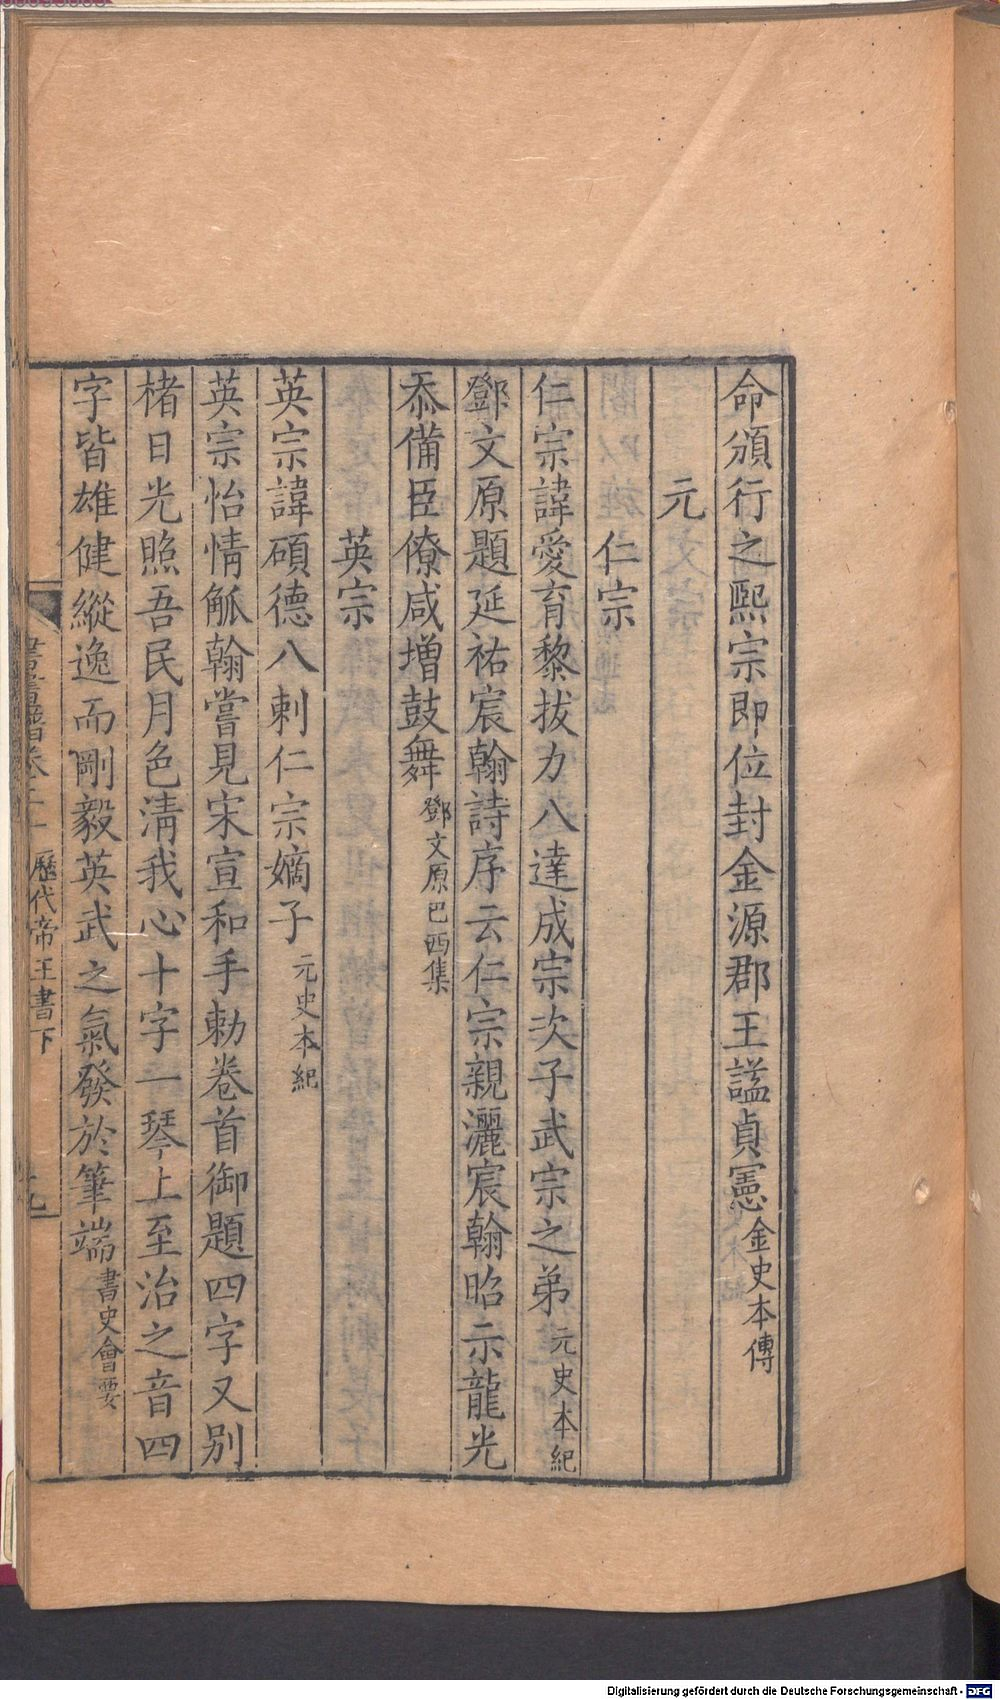 命頒行之熙宗即位封金源郡王諡貞憲金史本傳
元
仁宗
仁宗諱愛育黎拔力八達成宗次子武宗之弟元史本紀
鄧文原題延祐宸翰詩序云仁宗親灑宸翰昭示龍光
忝備臣僚咸增鼓舞鄧文原巴西集
英宗
英宗諱碩德八剌仁宗嫡子元史本紀
英宗怡情觚翰嘗見宋宣和手勅卷首御題四字又別
楮日光照吾民月色清我心十字一琴上至治之音四
字皆雄健縱逸而剛毅英武之氣發於筆端書史會要
歷代帝王書下
Digitalisierung gefördert durch die Deutsche Forschungsgemeinschaft - DFG